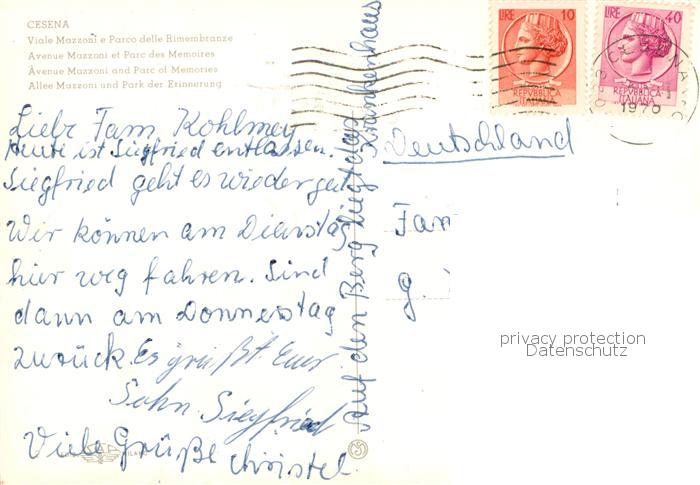 CESENA
Viale Mazzoni e Parco delle Rimembranze
Avenue Mazzoni et Parc des Memoires
Avenue Mazzoni and Parc of Memories
Allee Mazzoni und Park der Erinnerung
LIRE 10
REPVBBLICA
ITALIANA
LIRE 40
REPVBBLICA
ITALIANA
1976
Liebe Fam Kohlmey
Heute ist Siegfried entlassen.
Siegfried geht es wieder gut
Wir können am Dienstag
hier weg fahren. Sind
dann am Donnerstag
zurück. Es grüßt Euer
Sohn Siegfried
Viele Grüße Christel.
Auf den Berg liegt das Krankenhaus
Deutschland
Fam
G
privacy protection
Datenschutz